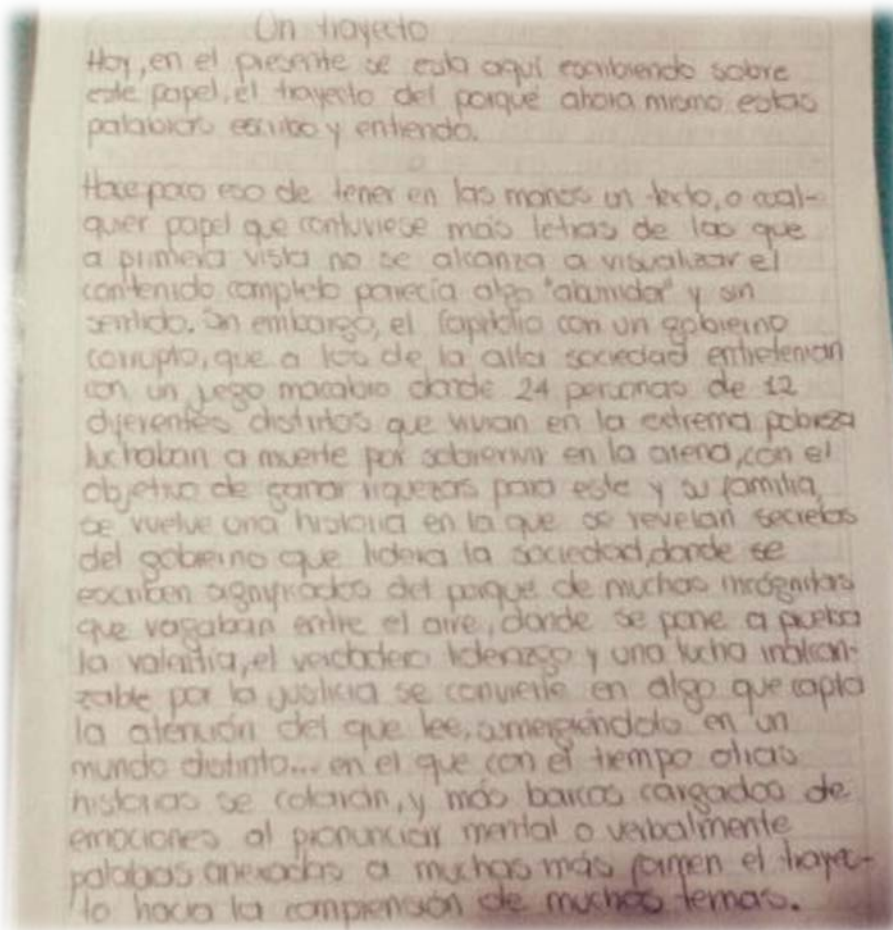 Un trayecto
Hoy, en el presente se esta aquí escribiendo sobre
este papel, el trayecto del porque ahora mismo estas
palabras escribo y entiendo.
Hace poco eso de tener en las manos un texto, o cual-
quier papel que contuviese más letras de las que
a primera vista no se alcanza a visualizar el
contenido completo parecía algo "aburridor" y sin
sentido. Sin embargo, el Capitolio con un gobierno
corrupto, que a los de la alta sociedad entretenian
con un juego macabro donde 24 personas de 12
diferentes distritos que vivian en la extrema pobreza
luchaban a muerte por sobrevivir en la arena, con el
objetivo de ganar riquezas para este y su familia,
se vuelve una historia en la que se revelan secretos
del gobierno que lidera la sociedad, donde se
escriben significados del porque de muchas incógnitas
que vagaban entre el aire, donde se pone a prueba
la valentia, el verdadero liderazgo y una lucha inalcan-
zable por la justicia se convierte en algo que capta
la atención del que lee, sumergiéndolo en un
mundo distinto... en el que con el tiempo otras
historias se colarán, y más barcos cargados de
emociones al pronunciar mental o verbalmente
palabras anexadas a muchas más formen el trayec-
to hacia la comprensión de muchos temas.